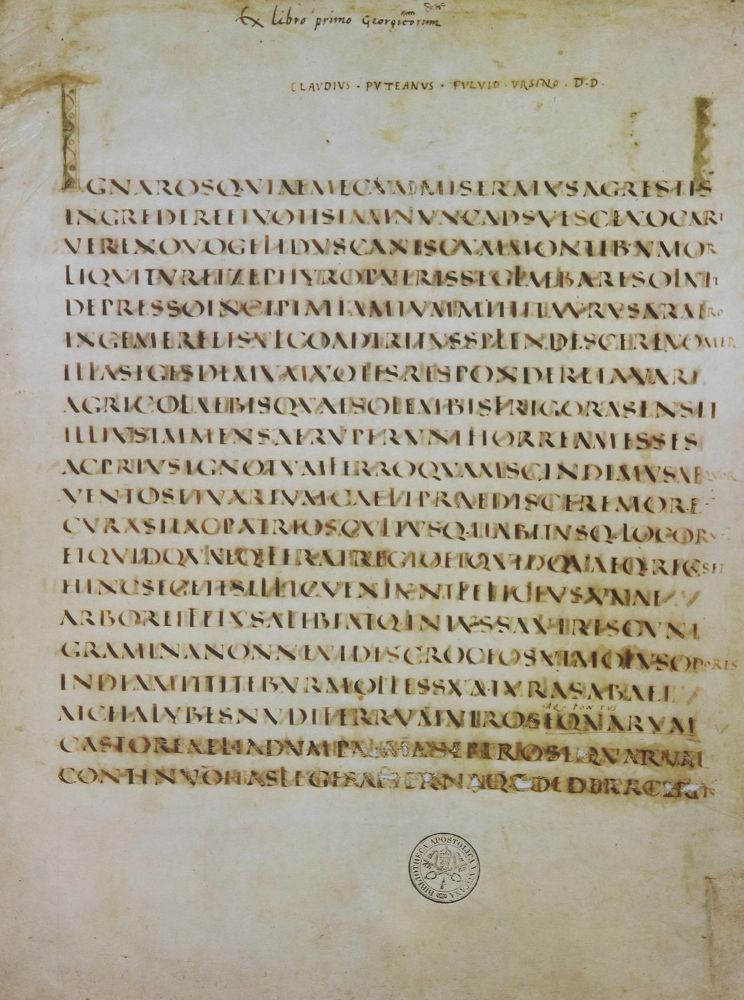 Ex libro primo Georgicorum
CLAUDIUS · PVTEANVS · FVLVIO · VRSINO · D·D·
IGNAROSQVIAEMECVMMISERATVSAGRESTIS
INGREDEREETVOTISIAMNVNCADSVESCEVOCARI
VERENOVOGELIDVSCANISCVMMONTIBVMOR
LIQVITVRETZEPHYROPVTRISSEGLAEBARESOLVIT
DEPRESSOINCIPIATIAMTVMMIHITAVRVSARATRO
INGEMEREETSVLCOADTRITVSSPLENDESCEREVOMER
ILLASEGESDEMVMVOTISRESPONDETAVARI
AGRICOLAEBISQVAESOLEMBISFRIGORASENSIT
ILLIVSIMMENSAERVPERVNTHORREAMESSES
ACPRIVSIGNOTVMFERROQVAMSCINDIMVSAEQVOR
VENTOSETVARIVMCAELIPRAEDISCEREMORE
CVRASITACPATRIOSCVLTVSQ·HABITVSQ·LOCORV
ETQVIDQVAEQ·FERATREGIOETQVIDQVAEQ·RECSET
HINCSEGETESILLICVENIVNTFELICIVSVVAE
ARBOREIFETVSALIBIATQ·INIVSSAVIRESCVNT
GRAMINANONNEVIDESCROCEOSVTTMOLVSODORES
INDIAMITTITEBVRMOLLESSVATVRASABAEI
AQ·PONTVS
ATCHALYBESNVDIFERRVMVIROS
CASTOREAELIADVMPALMASEPEIROSEQVARVM
CONTINVOHASLEGESAETERNAQ·
BIBLIOTHECA APOSTOLICA VATICANA